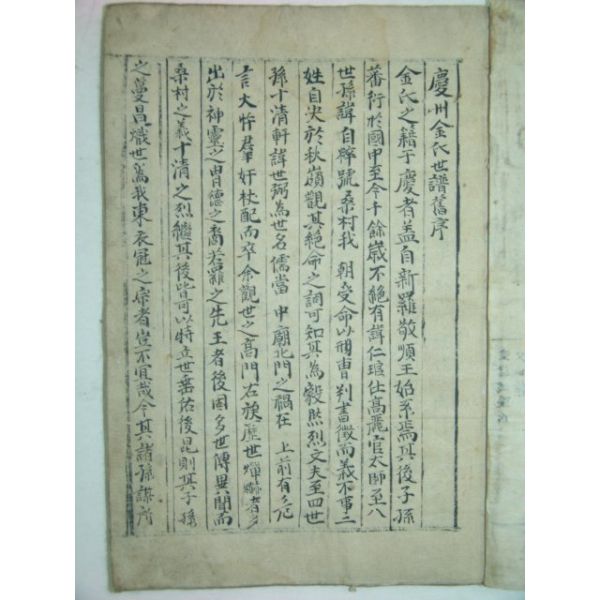 慶州金氏世譜舊序
金氏之籍于慶者盖自新羅敬順王始系焉其後子孫
蕃衍於國中至今千餘歲不絶有諱仁琯仕高麗官太師至八
世孫諱自粹號桑村我 朝受命以刑曹判書徵而義不事二
姓自决於秋嶺觀其絶命之詞可知其爲毅然烈丈夫至四世
孫十清軒諱世弼爲世名儒當 中廟北門之禍在 上前有
言大忤羣奸杖配而卒余觀世之高門右族歷世燀爀者多
出於神靈之胄德之裔若羅之先王者後固多世傳異聞而
桑村之義十清之烈繼其後皆可以特立世垂佑後昆則其子孫
之蔓昌熾世爲我東衣冠之宗者豈不宜哉今其諸孫謀所